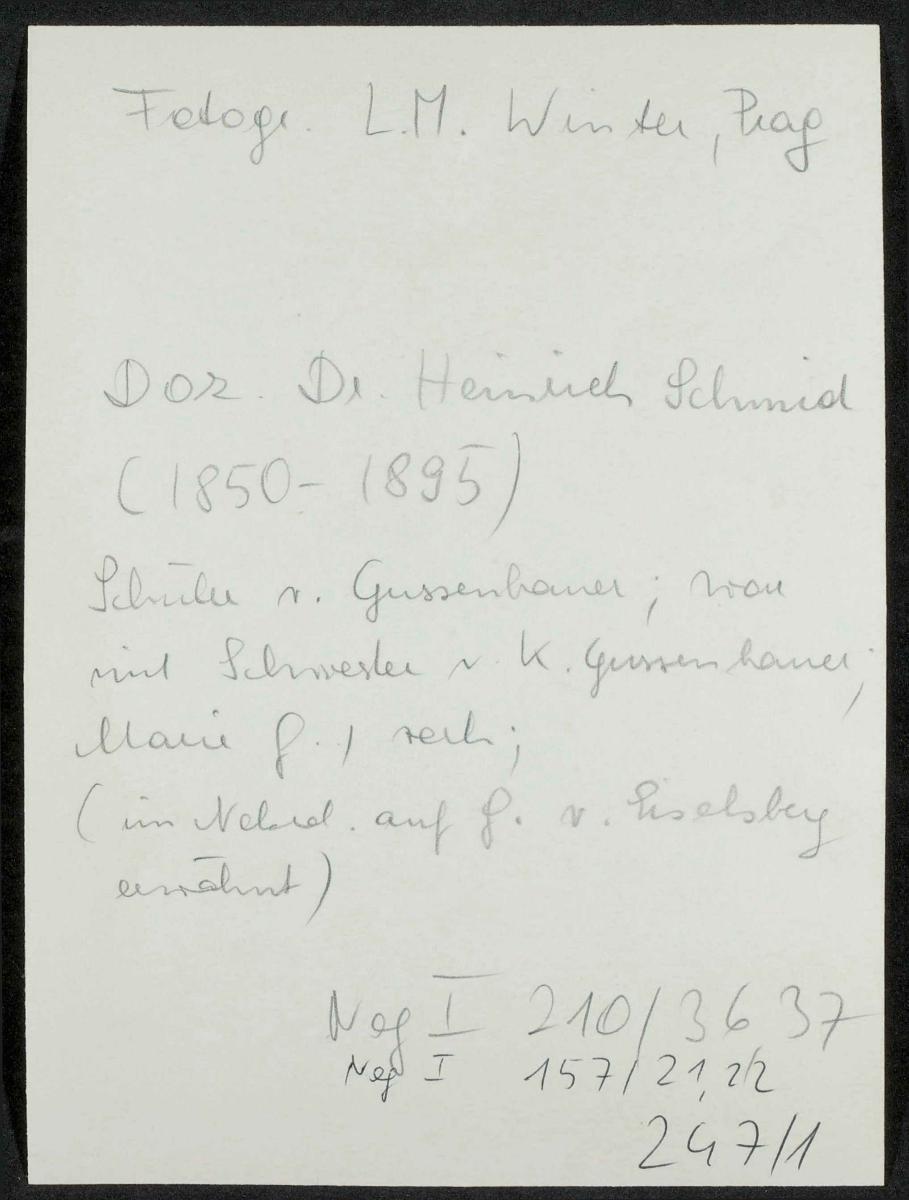 Fotogr. L.M. Winter, Prag
Doz. Dr. Heinrich Schmid
(1850-1895)
Schüler v. Gussenbauer; war
mit Schwester v. K. Gussenbauer;
Marie G., verh;
(im Nekrol. auf G. v. Eiselsberg
erwähnt)
Neg I 210/36,37
Neg I 157/21,22
247/1